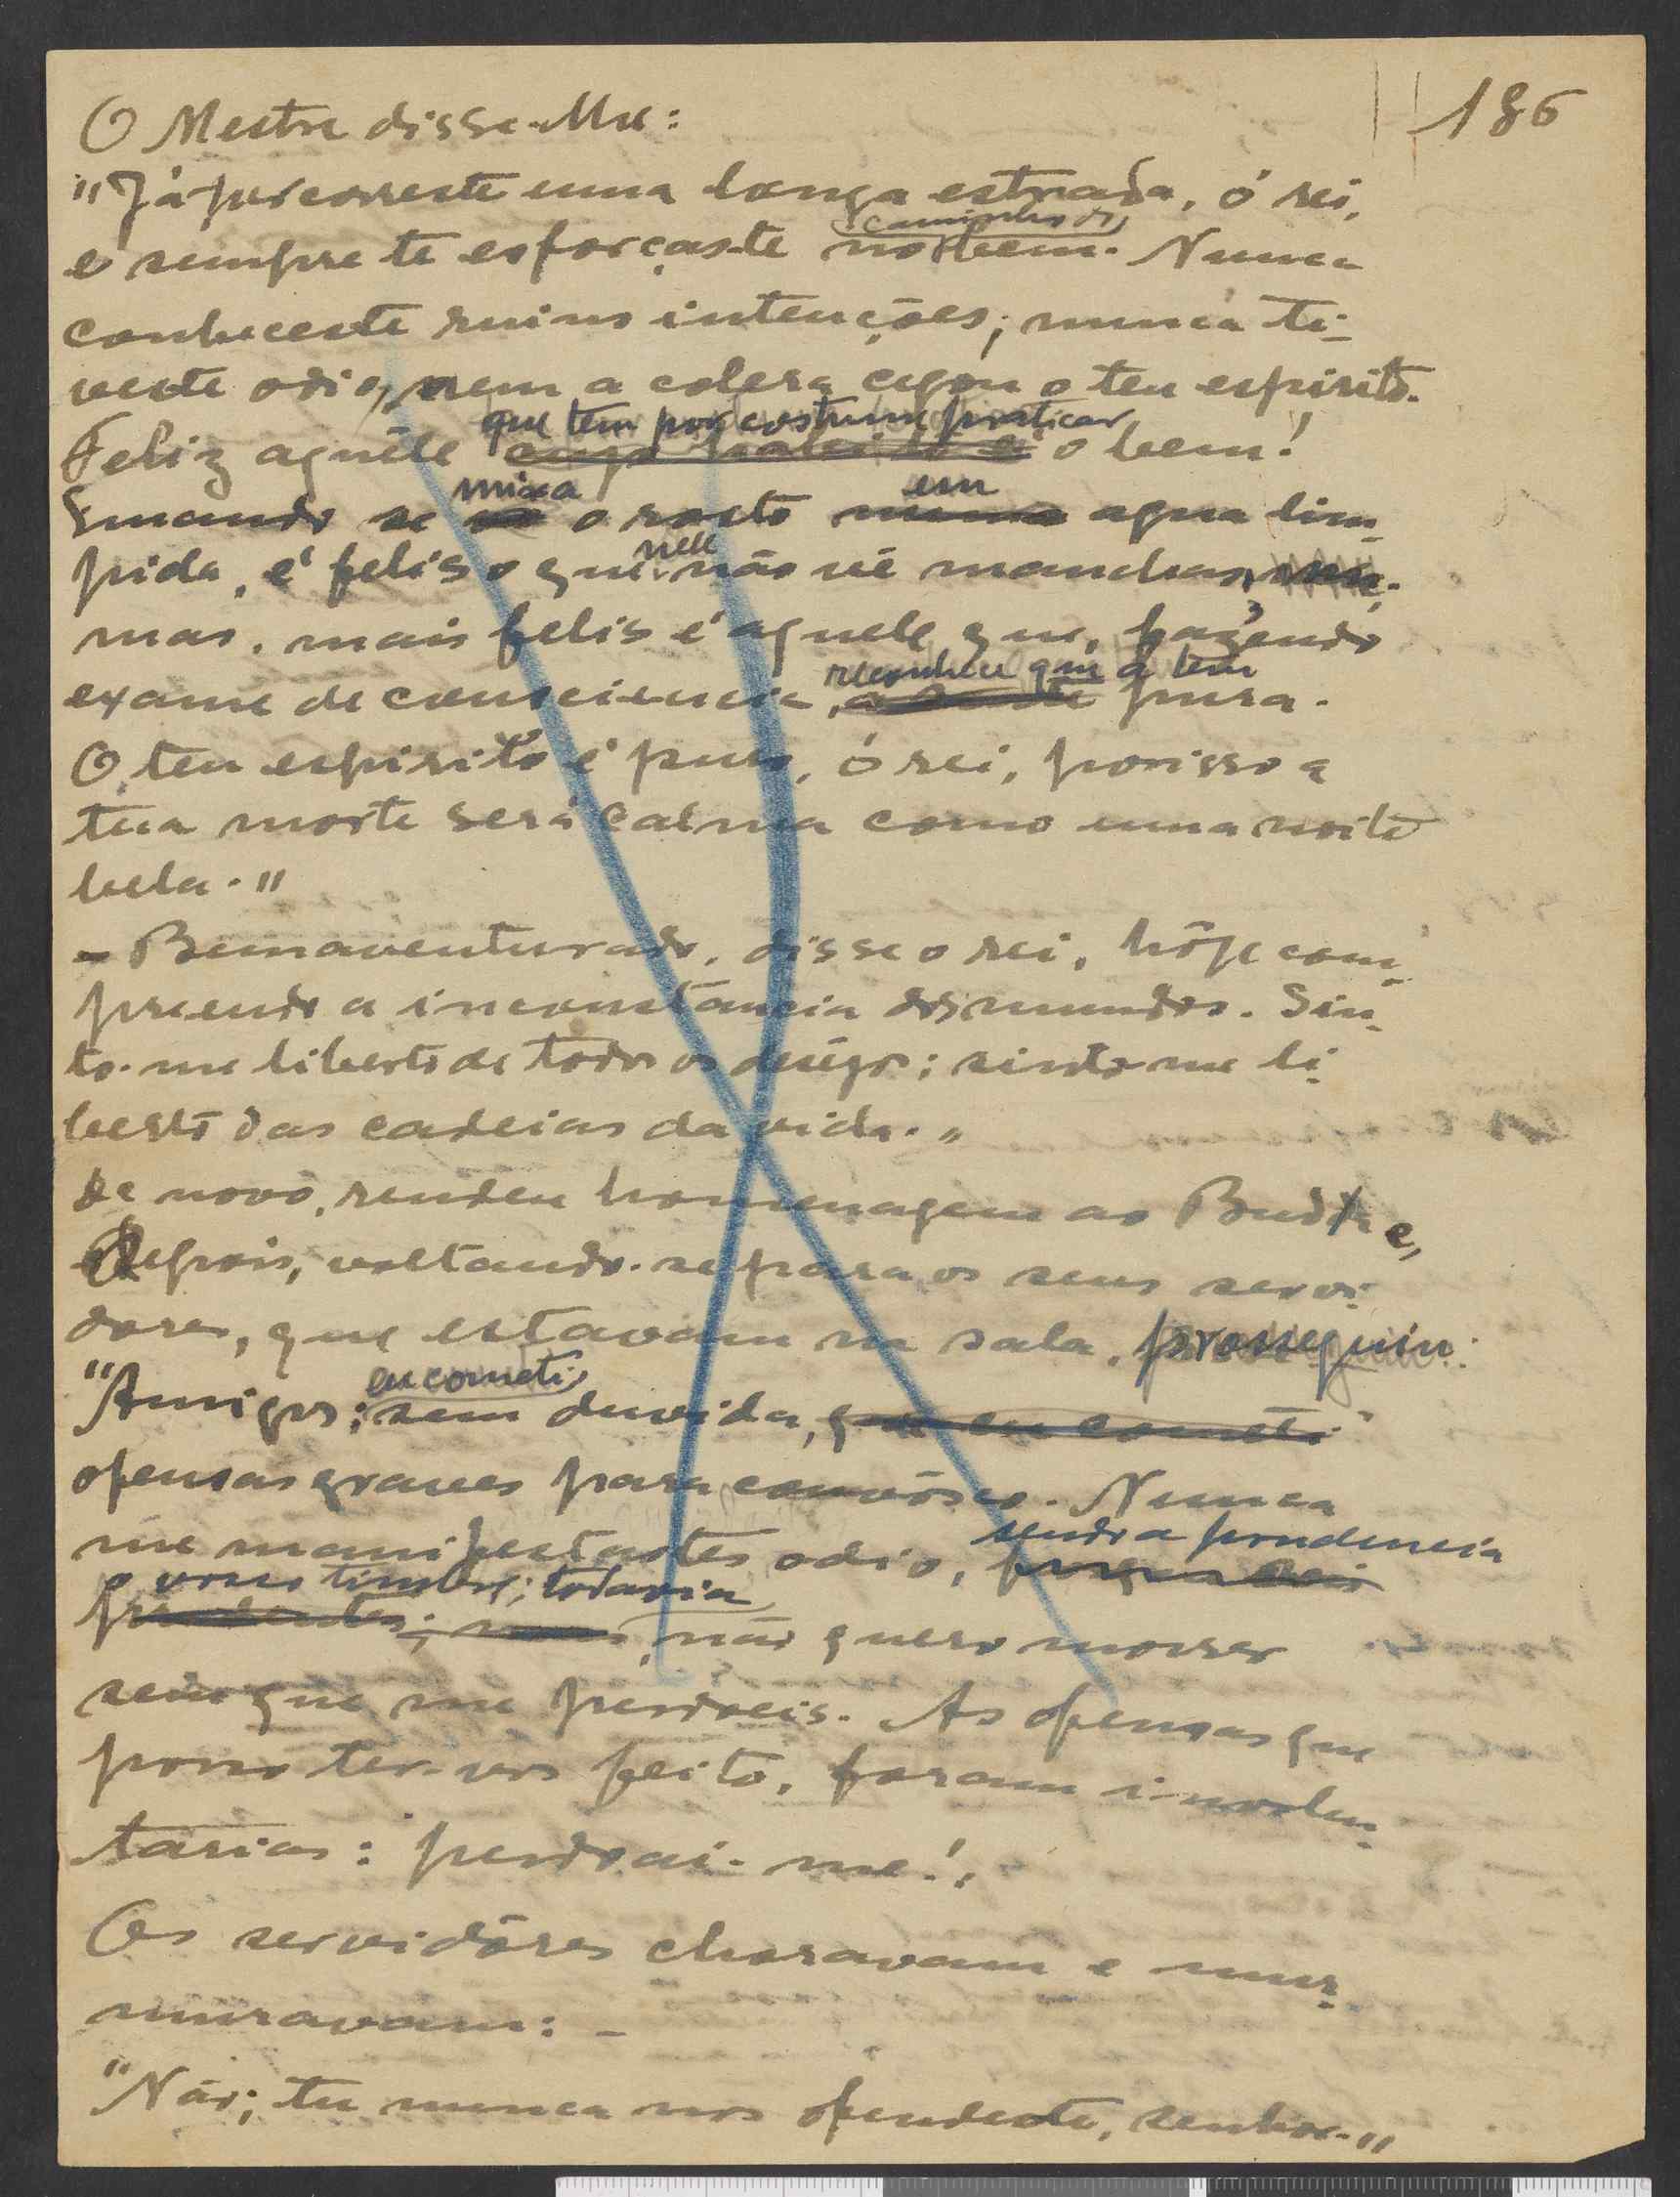 186
O Mestre disse-lhe:
"Já percorreste uma longa estrada, ó rei,
e sempre te esforçaste no caminho do bem. Nunca
conheceste ruins intenções; nunca ti-
veste odio, nem a colera cegou o teu espirito.
Feliz aquêle que tem por costume praticar o bem!
Quando se mira o rosto em agua lim-
pida, é felis o que nele não vê manchas,
mas, mais felis é aquele que, fazendo
exame de consciencia, reconhece que a tem pura.
O teu espirito é puro, ó rei, porisso a
tua morte será calma como uma noite
bela."
- Bemaventurado, disse o rei, hôje com-
preendo a inconstância dos mundos. Sin-
to-me liberto de todos os ; sinto-me li-
berto das cadeias da vida."
De novo, rendeu homenagem ao Buda e,
depois, voltando-se para os seus servi-
dores, que estavam na sala, prosseguiu:
"Amigos: eu cometi, sem duvida, que eu cometi
ofensas graves para comvósco. Nunca
me manifestastes odio, porque sois sendo a prudencia
o vosso timbre; todavia, não quero morrer
sem que me perdoeis. As ofensas que
posso ter-vos feito, foram involun-
tarias: perdoai-me!"
Os servidôres choravam e mur-
muravam: -
"Não; tu nunca nos ofendeste, senhor."